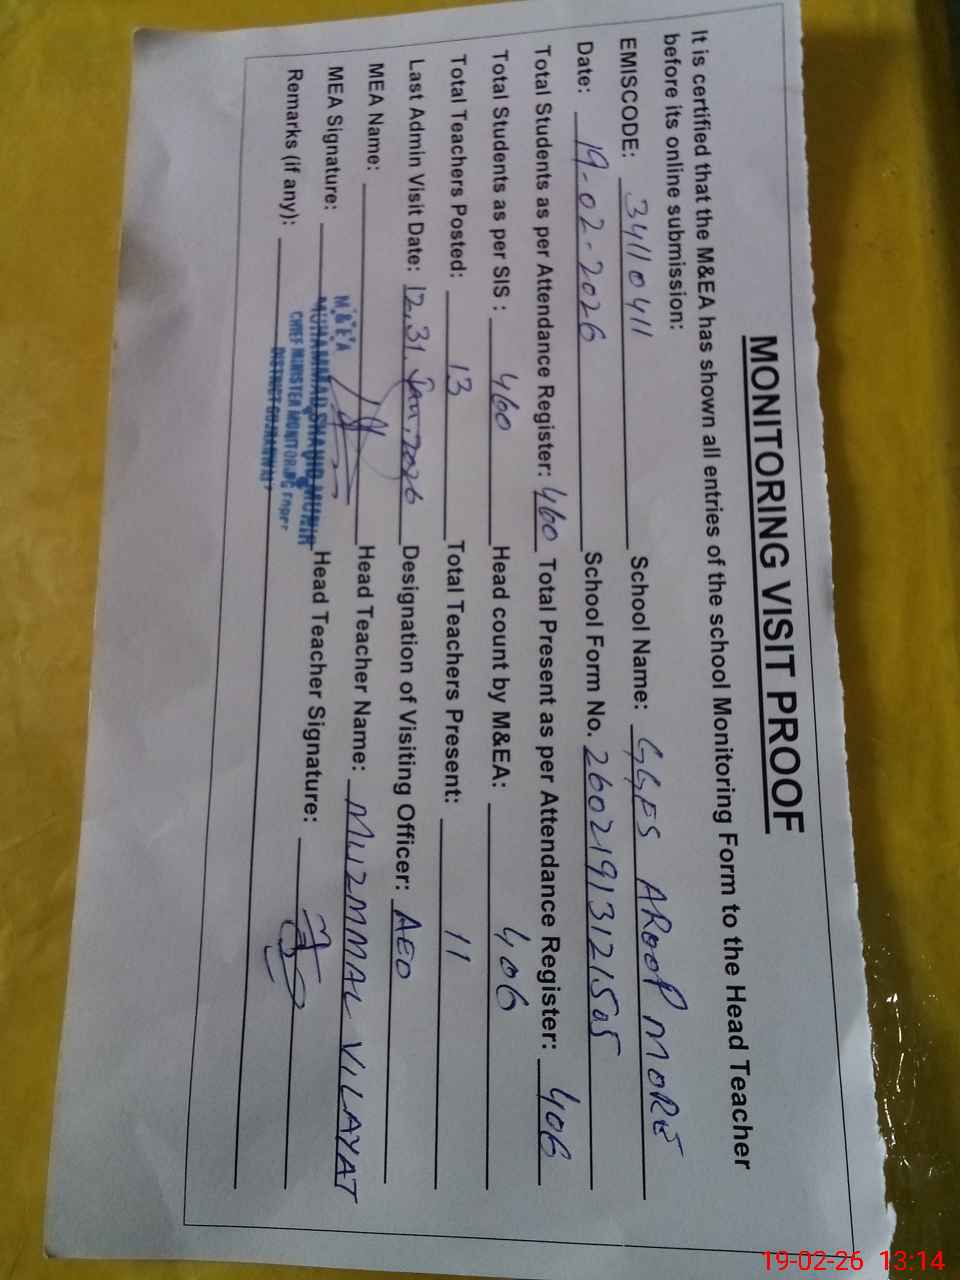 MONITORING VISIT PROOF
It is certified that the M&EA has shown all entries of the school Monitoring Form to the Head Teacher
before its online submission:
EMISCODE: 34110411 School Name: GGES AROOP MORE
Date: 19-02-2026 School Form No. 26021913121505
Total Students as per Attendance Register: 460 Total Present as per Attendance Register: 406
Total Students as per SIS : 460 Head count by M&EA: 406
Total Teachers Posted: 13 Total Teachers Present: 11
Last Admin Visit Date: 12,31, Jan, 2026 Designation of Visiting Officer: AEO
MEA Name: Head Teacher Name: MUZMMAL VILAYAT
MEA Signature: Head Teacher Signature:
Remarks (if any):
M&EA
MUHAMMAD SHAHID MUNIR
CHIEF MINISTER MONITORING Force
DISTRICT GUJRANWALA
19-02-26 13:14